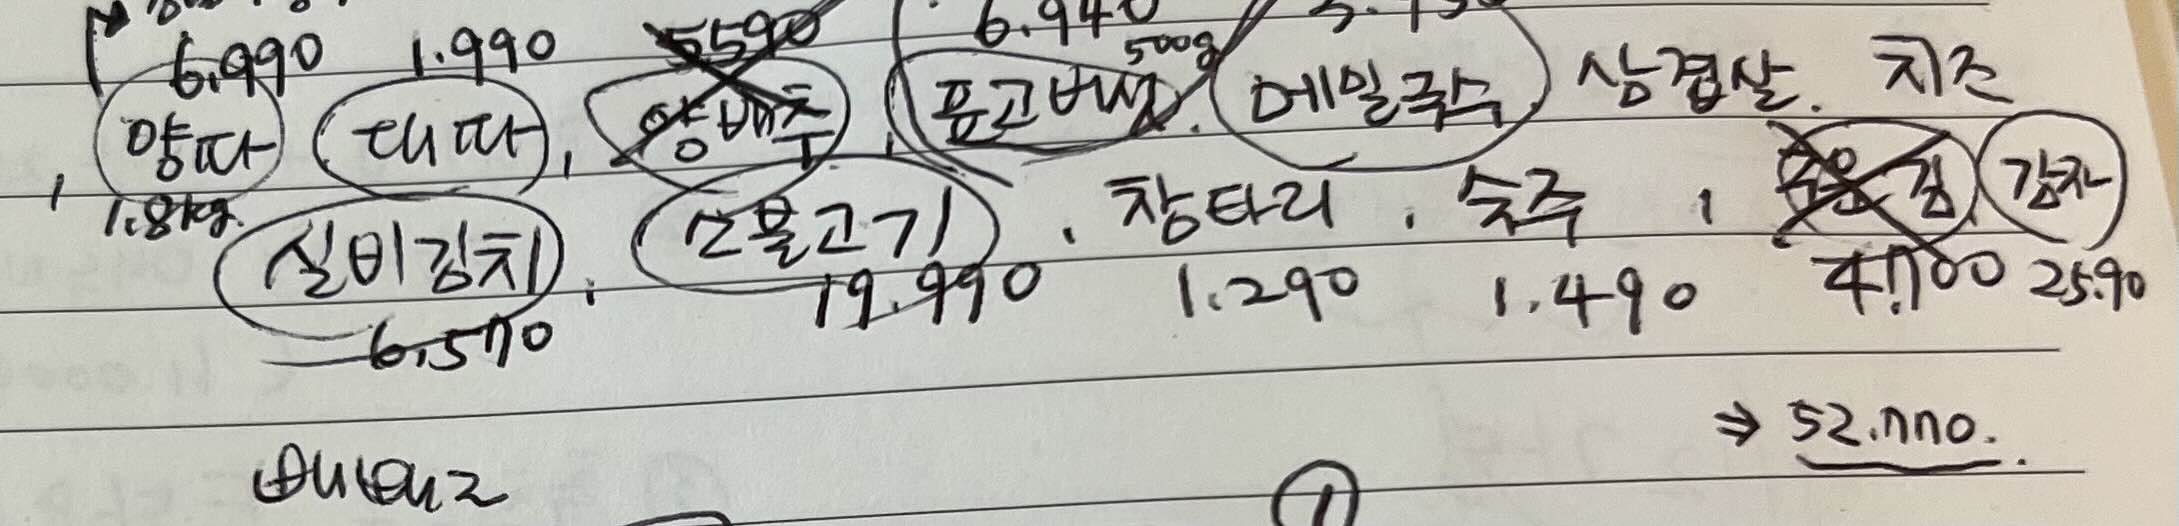 6.990 1.990 5590 6.940
500g
양파 대파, 양배추, 표고버섯. 메밀국수 삼겹살. 치즈
, 1.8kg. 실비김치, 소불고기. 창타리. 숙주, 김, 감자
6.570 19.990 1.290 1.490 4.700 25.90
⇒ 52.770.
1